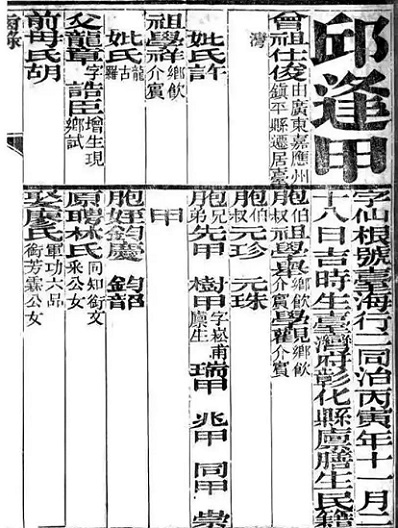 邱逢甲
曾祖仕俊由廣東嘉應州鎮平縣遷居臺
灣
妣氏許
祖學祥鄉飲介賓
妣氏
父龍章字誥臣增生現鄉試
前母氏胡
字仙根號臺海行二同治丙寅年十一月二
十八日吉時生臺灣府彰化縣廩膳生民籍
胞伯叔祖學鄉飲介賓學見鄉飲介賓
胞伯叔元珍 元珠
胞兄弟先甲 樹甲字崧甫廩生瑞甲 兆甲 同甲 崇
甲
胞姪鈞慶 鈞韶
原聘林氏同知銜文公女
娶廖氏軍功六品銜芳霖公女